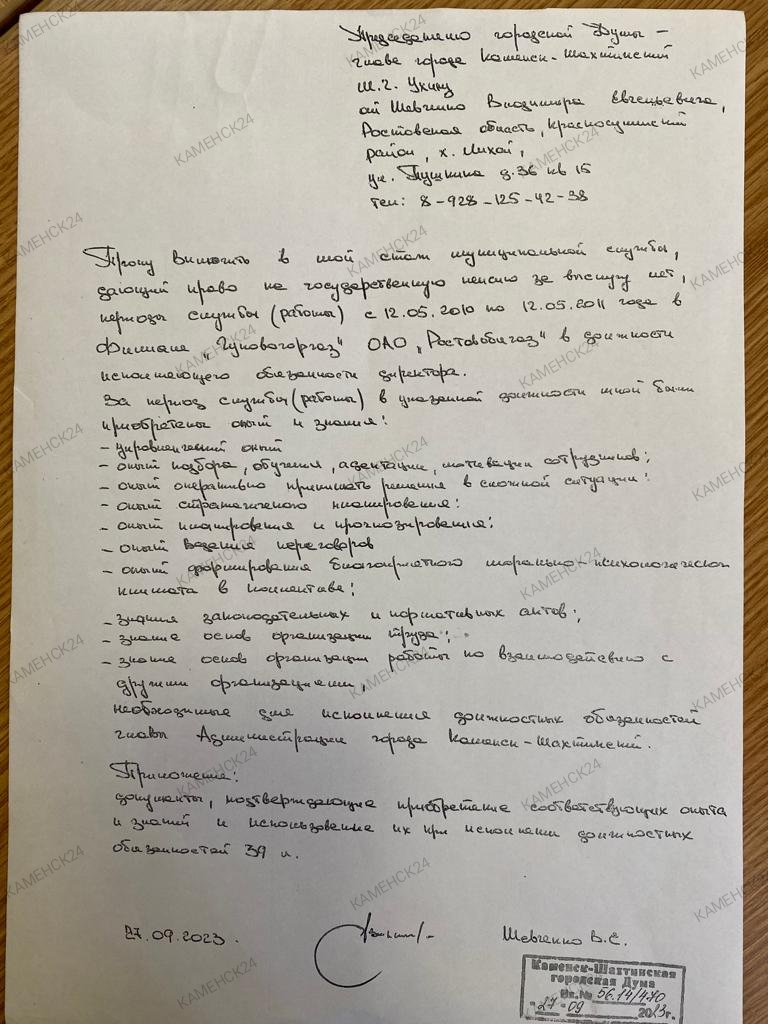 Председателю городской Думы –
главе города Каменск-Шахтинский
И.Г. Ухину
от Шевченко Владимира Евгеньевича,
Ростовская область, Красносулинский
район, х. Лихой,
ул. Пушкина д.36 кв 15
тел: 8-928-125-42-38
Прошу включить в мой стаж муниципальной службы,
дающий право на государственную пенсию за выслугу лет,
периоды службы (работы) с 12.05.2010 по 12.05.2011 года в
Филиале „Гуковогоргаз" ОАО „Ростовоблгаз" в должности
исполняющего обязанности директора.
За период службы (работы) в указанной должности мной были
приобретены опыт и знания:
– управленческий опыт
– опыт подбора, обучения, адаптации, мотивации сотрудников;
– опыт оперативно принимать решения в сложной ситуации:
– опыт стратегического планирования:
– опыт планирования и прогнозирования;
– опыт ведения переговоров
– опыт формирования благоприятного морально-психологического
климата в коллективе;
– знания законодательных и нормативных актов;
– знание основ организации труда;
– знание основ организации работы по взаимодействию с
другими организациями,
необходимые для исполнения должностных обязанностей
главы Администрации города Каменск-Шахтинский.
Приложение:
документы, подтверждающие приобретение соответствующих опыта
и знаний и использование их при исполнении должностных
обязанностей 39 л.
27.09.2023.
Шевченко В.Е.
Каменск-Шахтинская
городская Дума
Вх.№ 56.14/470
"27" 09 2023г.
КАМЕНСК24